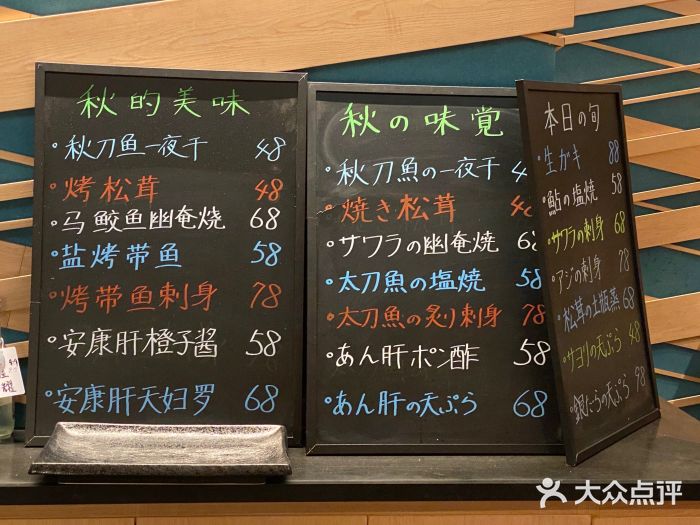 秋的美味
•秋刀鱼一夜干 48
•烤松茸 48
•马鲛鱼幽奄烧 68
•盐烤带鱼 58
•烤带鱼刺身 78
•安康肝橙子酱 58
•安康肝天妇罗 68
秋の味覚
•秋刀魚の一夜干
•焼き松茸 48
•サワラの幽奄焼 68
•太刀魚の塩焼 58
•太刀魚の炙り刺身 78
•あん肝ポン酢 58
•あん肝の天ぷら 68
本日の旬
•生ガキ 88
•鮎の塩焼 58
•サワラの刺身 68
•アジの刺身 78
•松茸の土瓶蒸 68
•サヨリの天ぷら 48
•銀だらの天ぷら 98
大众点评